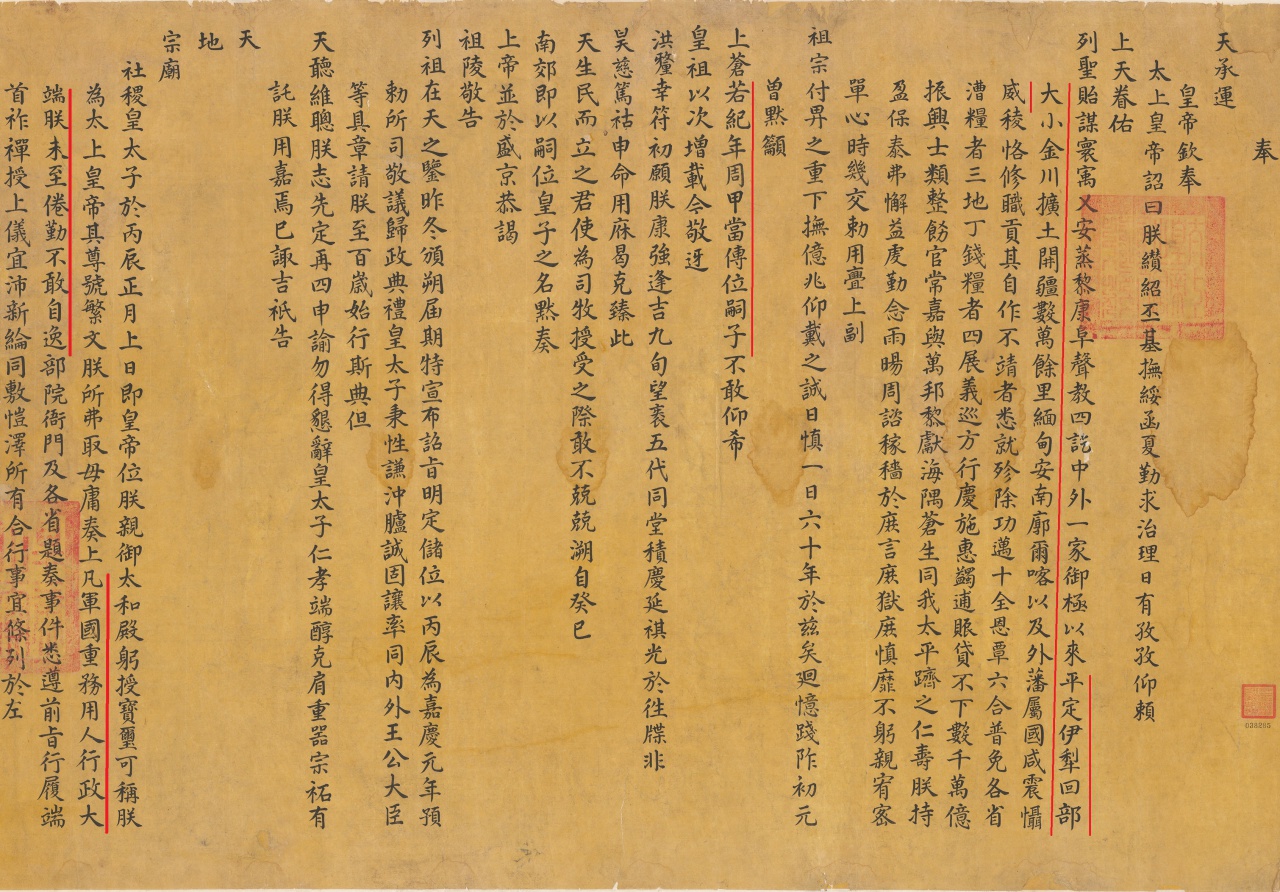 奉
天承運
皇帝欽奉
太上皇帝詔曰朕纘紹丕基撫綏函夏勤求治理日有孜孜仰賴
上天眷佑
列聖貽謀寰寓乂安蒸黎康阜聲教四訖中外一家御極以來平定伊犁回部
大小金川擴土開疆數萬餘里緬甸安南廓爾喀以及外藩屬國咸震懾
威稜恪修職貢其自作不靖者悉就殄除功邁十全恩覃六合普免各省
漕糧者三地丁錢糧者四展義巡方行慶施惠蠲逋賑貸不下數千萬億
振興士類整飭官常嘉與萬邦黎獻海隅蒼生同我太平躋之仁壽朕持
盈保泰弗懈益虔勤念雨暘周諮稼穡於庶言庶獄庶慎靡不躬親宥密
單心時幾交勅用亹上副
祖宗付畀之重下撫億兆仰戴之誠日慎一日六十年於茲矣廻憶踐阼初元
曾默籲
上蒼若紀年周甲當傳位嗣子不敢仰希
皇祖以次增載今敬迓
洪釐幸符初願朕康強逢吉九旬望袠五代同堂積慶延祺光於徃牒非
昊慈篤祜申命用庥曷克臻此
天生民而立之君使為司牧授受之際敢不兢兢溯自癸巳
南郊即以嗣位皇子之名默奏
上帝並於盛京恭謁
祖陵敬告
列祖在天之鑒昨冬頒朔届期特宣布詔旨明定儲位以丙辰為嘉慶元年預
勅所司敬議歸政典禮皇太子秉性謙沖臚誠固讓率同內外王公大臣
等具章請朕至百歲始行斯典但
天聽維聰朕志先定再四申諭勿得懇辭皇太子仁孝端醇克肩重器宗祏有
託朕用嘉焉已諏吉祇告
天
地
宗廟
社稷皇太子於丙辰正月上日即皇帝位朕親御太和殿躬授寶璽可稱朕
為太上皇帝其尊號繁文朕所弗取毋庸奏上凡軍國重務用人行政大
端朕未至倦勤不敢自逸部院衙門及各省題奏事件悉遵前旨行履端
首祚禪授上儀宜沛新綸同敷愷澤所有合行事宜條列於左